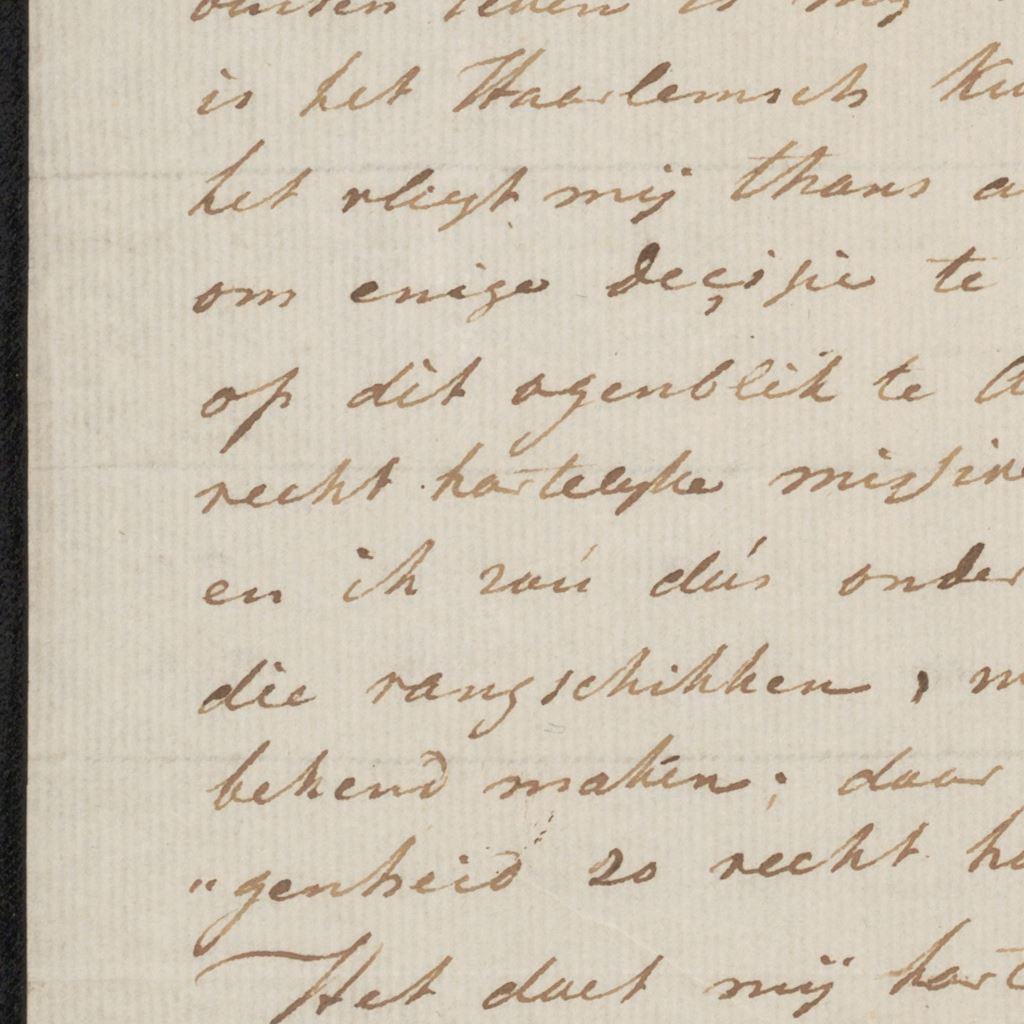 buiten leven is mij
is het Haarlemsch
het vliegt mij thans
om enige deçisie te
op dit ogenblik te
recht hartelyke missive
en ik zoú dús onder
die rangschikken,
bekend maken; daar
"genheid zo recht
Het doet mij